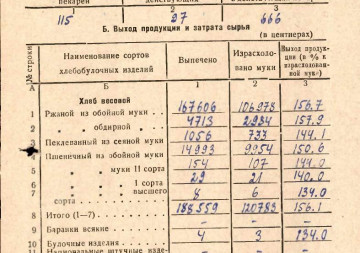 пекарен
1 2 3
115 27 666
Б. Выход продукции и затрата сырья
(в центнерах)
№ строки Наименование сортов хлебобулочных изделий Выпечено Израсходовано муки Выход продукции (в % к израсходованной муке)
А Б 1 2 3
Хлеб весовой
1 Ржаной из обойной муки 167606 106978 156.7
2 „ „ обдирной „ 4713 2984 157.9
3 Пеклеванный из сеяной муки 1056 733 144.1
4 Пшеничный из обойной муки 14993 9954 150.6
5 „ муки II сорта 154 107 144.0
6 „ „ 1 сорта 29 21 140.0
7 „ „ высшего сорта 8 6 134.0
8 Итого (1—7) 188559 120783 156.1
9 Баранки всякие — — —
10 Булочные изделия 4 3 134.0
Национальные штучные изде-